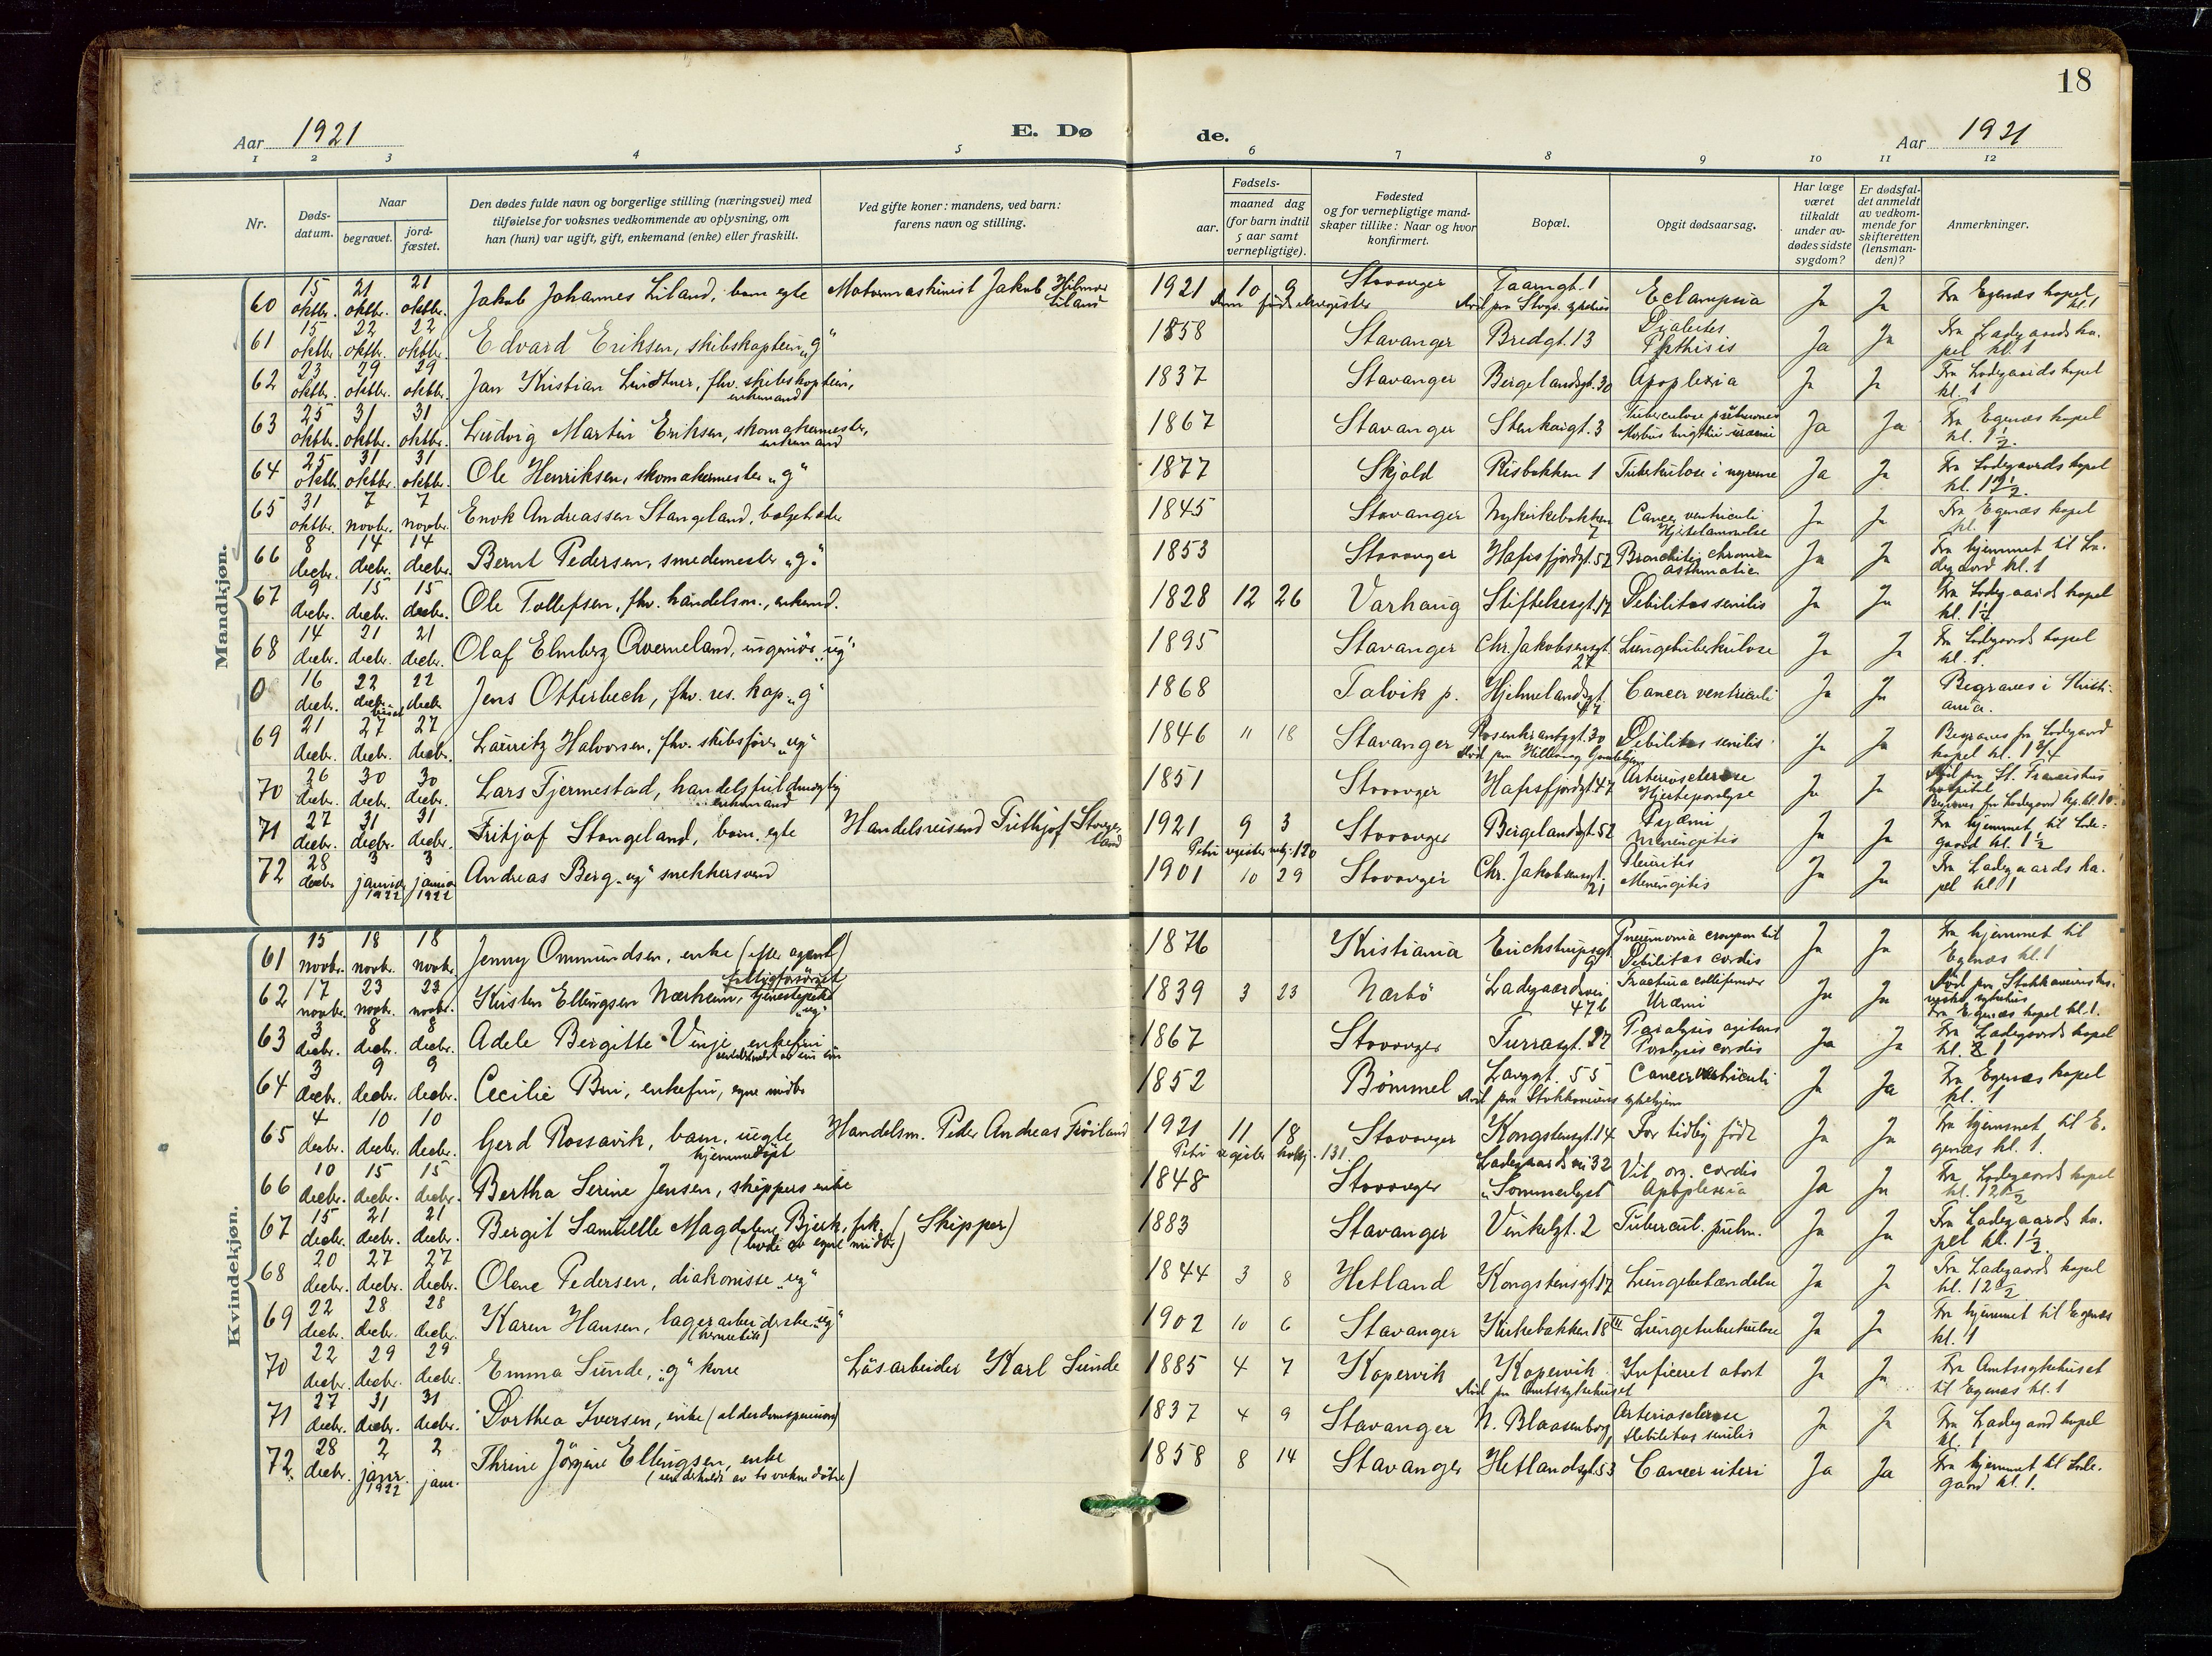 18
Aar 1921
E. Dø
de.
Aar 1921
1 2 3 4 5 6 7 8 9 10 11 12
Nr.
Døds-
datum.
Naar
begravet.
jord-
fæstet.
Den dødes fulde navn og borgerlige stilling (næringsvei) med
tilføielse for voksnes vedkommende av oplysning, om
han (hun) var ugift, gift, enkemand (enke) eller fraskilt.
Ved gifte koner: mandens, ved barn:
farens navn og stilling.
Fødsels-
aar. maaned dag
(for barn indtil
5 aar samt
vernepligtige).
Fødested
og for vernepligtige mand-
skaper tillike: Naar og hvor
konfirmert.
Bopæl.
Opgit dødsaarsag.
Har læge
været
tilkaldt
under av-
dødes sidste
sygdom?
Er dødsfal-
det anmeldt
av vedkom-
mende for
skifteretten
(lensman-
den)?
Anmerkninger.
Mandkjøn.
60 15 oktbr. 21 oktbr. 21 oktbr. Jakob Johannes Liland, barn egte Motormaskinist Jakob Hilmar Liland 1921 10 9 Stavanger Taarngt. 1 Eclampsia Ja Ja Fra Egenæs kapel, kl. 1
61 15 oktbr. 22 oktbr. 22 oktbr. Edvard Eriksen, skibskaptein "g" 1858 Stavanger Bredgt. 13 Diabetes Phthisis Ja Ja Fra Ladegaards ka- pel kl. 1
62 23 oktbr. 29 oktbr. 29 oktbr. Jan Kristian Lindtner, fhv. skibskaptein, enkemand 1837 Stavanger Bergelandsgt. 30 Apoplexia Ja Ja Fra Ladegaards kapel kl. 1
63 25 oktbr. 31 oktbr. 31 oktbr. Ludvig Martin Eriksen, skomakermester, enkemand 1867 Stavanger Stenkargt. 3 Tuberculose pulmones Ja Ja Fra Egenæs kapel kl. 1 1/2.
64 25 oktbr. 31 oktbr. 31 oktbr. Ole Henriksen, skomakermester "g" 1877 Skjold Risbakken 1 Tuberkulose i nyrerne Ja Ja Fra Ladegaards kapel kl. 12 1/2.
65 31 oktbr. 7 novbr. 7 novbr. Enok Andreassen Stangeland, 1845 Stavanger Nykirkebakken 7 Cancer ventriculi Hjertelammelse Ja Ja Fra Egenæs kapel kl. 1
66 8 decbr. 14 decbr. 14 decbr. Bernt Pedersen, smedemester "g" 1853 Stavanger Hafrsfjordgt. 52 Bronchitis chronica asthmatica Ja Ja Fra hjemmet til La- degaard kl. 1
67 9 decbr. 15 decbr. 15 decbr. Ole Tollefsen, fhv. handelsm., enkemd. 1828 12 26 Varhaug Stiftelsesgt. 17 Debilitas senilis Ja Ja Fra Ladegaards kapel kl. 1 1/4
68 14 decbr. 21 decbr. 21 decbr. Olaf Elmberg Qverneland, ingeniör "ug" 1895 Stavanger Chr. Jakobsensgt. 27 Lungetuberkulose Ja Ja Fra Ladegaards kapel kl. 1.
0 16 decbr. 22 decbr. 22 decbr. Jens Otterbech, fhv. res. kap. "g" 1868 Talvik p. Hjelmelandsgt. 47 Cancer ventriculi Ja Ja Begraves i Kristi- ania.
69 21 decbr. 27 decbr. 27 decbr. Lauritz Halvorsen, fhv. skibsfører "ug" 1846 11 18 Stavanger Rosenkrantzgt. 30 Debilitas senilis Ja Ja Begraves fra Ladegaard kapel kl. 1 3/4
70 26 decbr. 30 decbr. 30 decbr. Lars Tjermestad, handelsfuldmægtig enkemand 1851 Stavanger Hafrsfjordgt. 47 Arteriosclerose Hjerteparalyse Ja Ja Död paa St. Franciskus hospital
71 27 decbr. 31 decbr. 31 decbr. Fritjof Stangeland, barn. egte Handelsreisend Frithjof Stange- land 1921 9 3 Stavanger Bergelandsgt. 52 Pyæmi Meningitis Ja Ja Fra hjemmet til Lade- gaard kl. 1 1/2
Petri register nr. 120
72 28 decbr. 3 januar 1922 3 januar 1922 Andreas Berg "ug" snekkersvend 1901 10 29 Stavanger Chr. Jakobsensgt. 21 Pleuritis Meningitis Ja Ja Fra Ladegaards ka- pel kl. 1
Kvindekjøn.
61 15 novbr. 18 novbr. 18 novbr. Jenny Ommundsen, enke (efter agent) 1876 Kristiania Erichstrupsgt. 9 Pneumonia croupøs bil. Debilitas cordis Ja Ja Fra hjemmet til Egenæs kl. 1
62 17 novbr. 23 novbr. 23 novbr. Kirsten Ellingsen Nærheim, fattigforsörget tjenestepike "ug" 1839 3 23 Nærbö Ladegaardsvei 47b Fractura colli femoris Uræmi Ja Ja Fra Egenæs kapel kl. 1.
63 3 decbr. 8 decbr. 8 decbr. Adele Bergitte Vinje enkefru 1867 Stavanger Turragt. 27 Paralysis agitans Paralysis cordis Ja Ja Fra Ladegaards kapel kl. 1
64 3 decbr. 9 decbr. 9 decbr. Cecilie Bru, enkefru, egne midler 1852 Bömmel Langgt. 55 Cancer ventriculi Ja Ja Fra Egenæs kapel kl. 1
65 4 decbr. 10 decbr. 10 decbr. Gerd Rossavik, barn, uegte hjemmedöpt Handelsm. Peder Andreas Fröiland 1921 11 18 Stavanger Kongstensgt. 14 For tidlig född Ja Ja Fra hjemmet til E- genæs kl. 1.
Petri register 131
66 10 decbr. 15 decbr. 15 decbr. Bertha Serine Jensen, skippers enke 1848 Stavanger Ladegaardsvei 32 "Sommerlyst" Vit. org. cordis Apoplexia Ja Ja Fra Ladegaards kapel kl. 12 1/2
67 15 decbr. 21 decbr. 21 decbr. Bergit Samuelle Magdalene Bjerk, frk. (levde av egne midler) (Skipper) 1883 Stavanger Vinkelgt. 2 Tubercul. pulm. Ja Ja Fra Ladegaards ka- pel kl. 1 1/2.
68 20 decbr. 27 decbr. 27 decbr. Olene Pedersen, diakonisse "ug" 1844 3 8 Hetland Kongstensgt. 17 Lungebetændelse Ja Ja Fra Ladegaards kapel kl. 12 1/2
69 22 decbr. 28 decbr. 28 decbr. Karen Hansen, lagerarbeiderske "ug" (hermetik) 1902 10 6 Stavanger Kirkebakken 18 III Lungetuberkulose Ja Ja Fra hjemmet til Egenæs kl. 1
70 22 decbr. 29 decbr. 29 decbr. Emma Sunde, "g" kone Läsarbeider Karl Sunde 1885 4 7 Kopervik Kopervik Död paa Amtssykehuset Inficeret abort Ja Ja Fra Amtssykehuset til Egenæs kl. 1
71 27 decbr. 31 decbr. 31 decbr. Dorthea Iversen, enke (alderdomspension) 1837 4 9 Stavanger N. Blaasenborg 1 Arteriosclerose Debilitas senilis Ja Ja Fra Ladegaard kapel kl. 1
72. 28 decbr. 2 janr. 1922 2 janr. Thrine Jörgine Ellingsen, enke (underholdt av to voksne dötre) 1858 8 14 Stavanger Hetlandsgt. 53 Cancer uteri Ja Ja Fra hjemmet til Lade- gaard kl. 1.